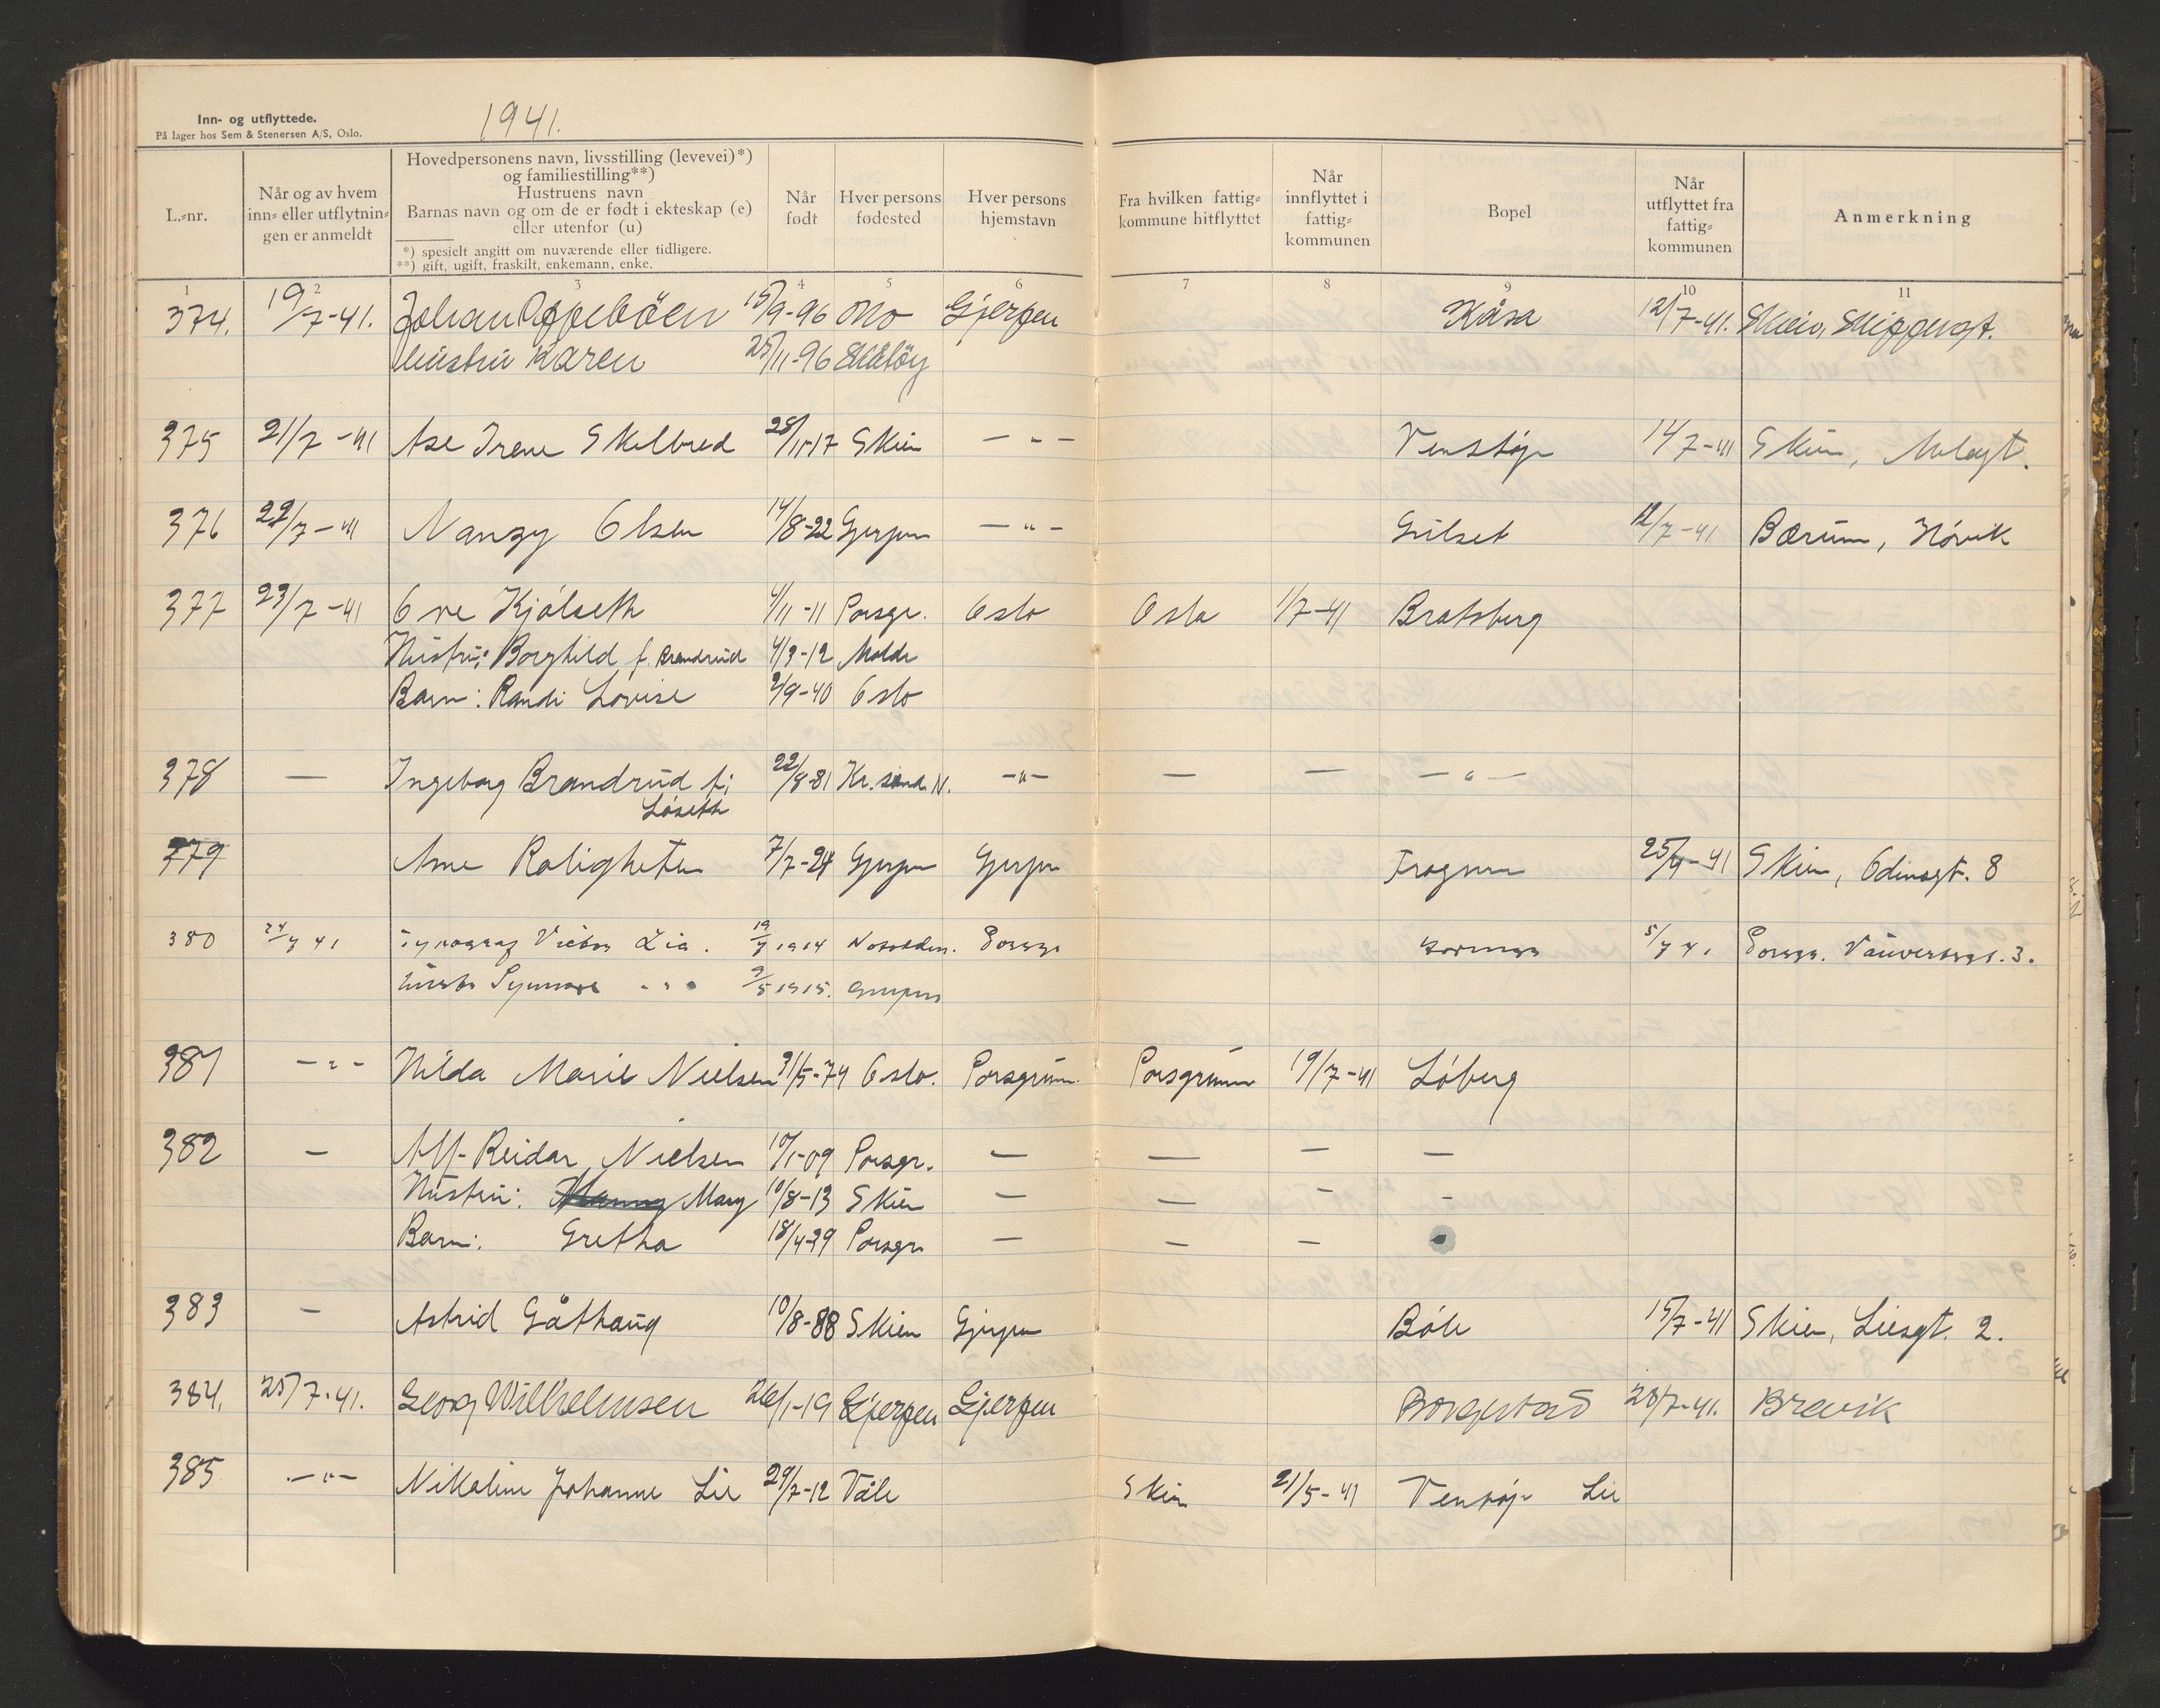 Inn- og utflyttede.
På lager hos Sem & Stenersen A/S, Oslo.
1941.
L.-nr.
Når og av hvem inn- eller utflytnin- gen er anmeldt
Hovedpersonens navn, livsstilling (levevei)*)
og familiestilling**)
Hustruens navn
Barnas navn og om de er født i ekteskap (e)
eller utenfor (u)
*) spesielt angitt om nuværende eller tidligere.
**) gift, ugift, fraskilt, enkemann, enke.
Når født
Hver persons fødested
Hver persons hjemstavn
Fra hvilken fattig- kommune hitflyttet
Når innflyttet i fattig- kommunen
Bopel
Når utflyttet fra fattig- kommunen
Anmerkning
1 2 3 4 5 6 7 8 9 10 11
374. 19/7-41. Johan Oppebøen 15/9-96 Mo Gjerpen Kåsa 12/7-41. Skien, Skippergt.
Hustru Karen 25/11-96 Skåtøy
375 21/7-41 Åse Irene Skilbred 28/11-17 Skien —"— Venstøp 14/7-41 Skien,
376 22/7-41 Nanzy Olsen 14/8-22 Gjerpen —"— Gulset 12/7-41 Bærum, Høvik
377 23/7-41 Ove Kjølseth 4/11-11 Porsgr. Oslo Oslo 1/7-41 Bratsberg
Hustru: Borghild f. Brandrud 4/3-12 Molde
Barn: Randi Lovise 2/9-40 Oslo
378 — Ingeborg Brandrud f; 22/8-81 Kr.sand. N. —"— — — —"—
Løseth
379 Arne Roligheten 7/7-24 Gjerpen Gjerpen Frogner 25/4-41 Skien, Odinsgt. 8
380 24/7 41 Typograf Victor Lia. 19/7 1914 Notodden. Porsgr 5/7 41 Porsgr. 3.
Hustru Synnøve " " 9/5 1915. Gjerpen
381 —"— Hilda Marie Nielsen 31/5-74 Oslo. Porsgrunn. Porsgrunn 19/7-41 Løberg
382 — Alf-Reidar Nielsen 10/1-09 Porsgr. — — — —
Hustru: Mary 10/8-13 Skien — — — -
Barn: Gretha 18/4-39 Porsgr — — —
383 — Astrid Gåthaug 10/8-88 Skien Gjerpen Bøle 15/7-41 Skien, Liesgt. 2.
384. 25/7-41. Georg Wilhelmsen 26/1-19 Gjerpen Gjerpen Borgestad 28/7-41. Brevik
385 —"— Nikoline Johanne Lie 29/7-12 Våle Skien 21/5-41 Venstøp Lie